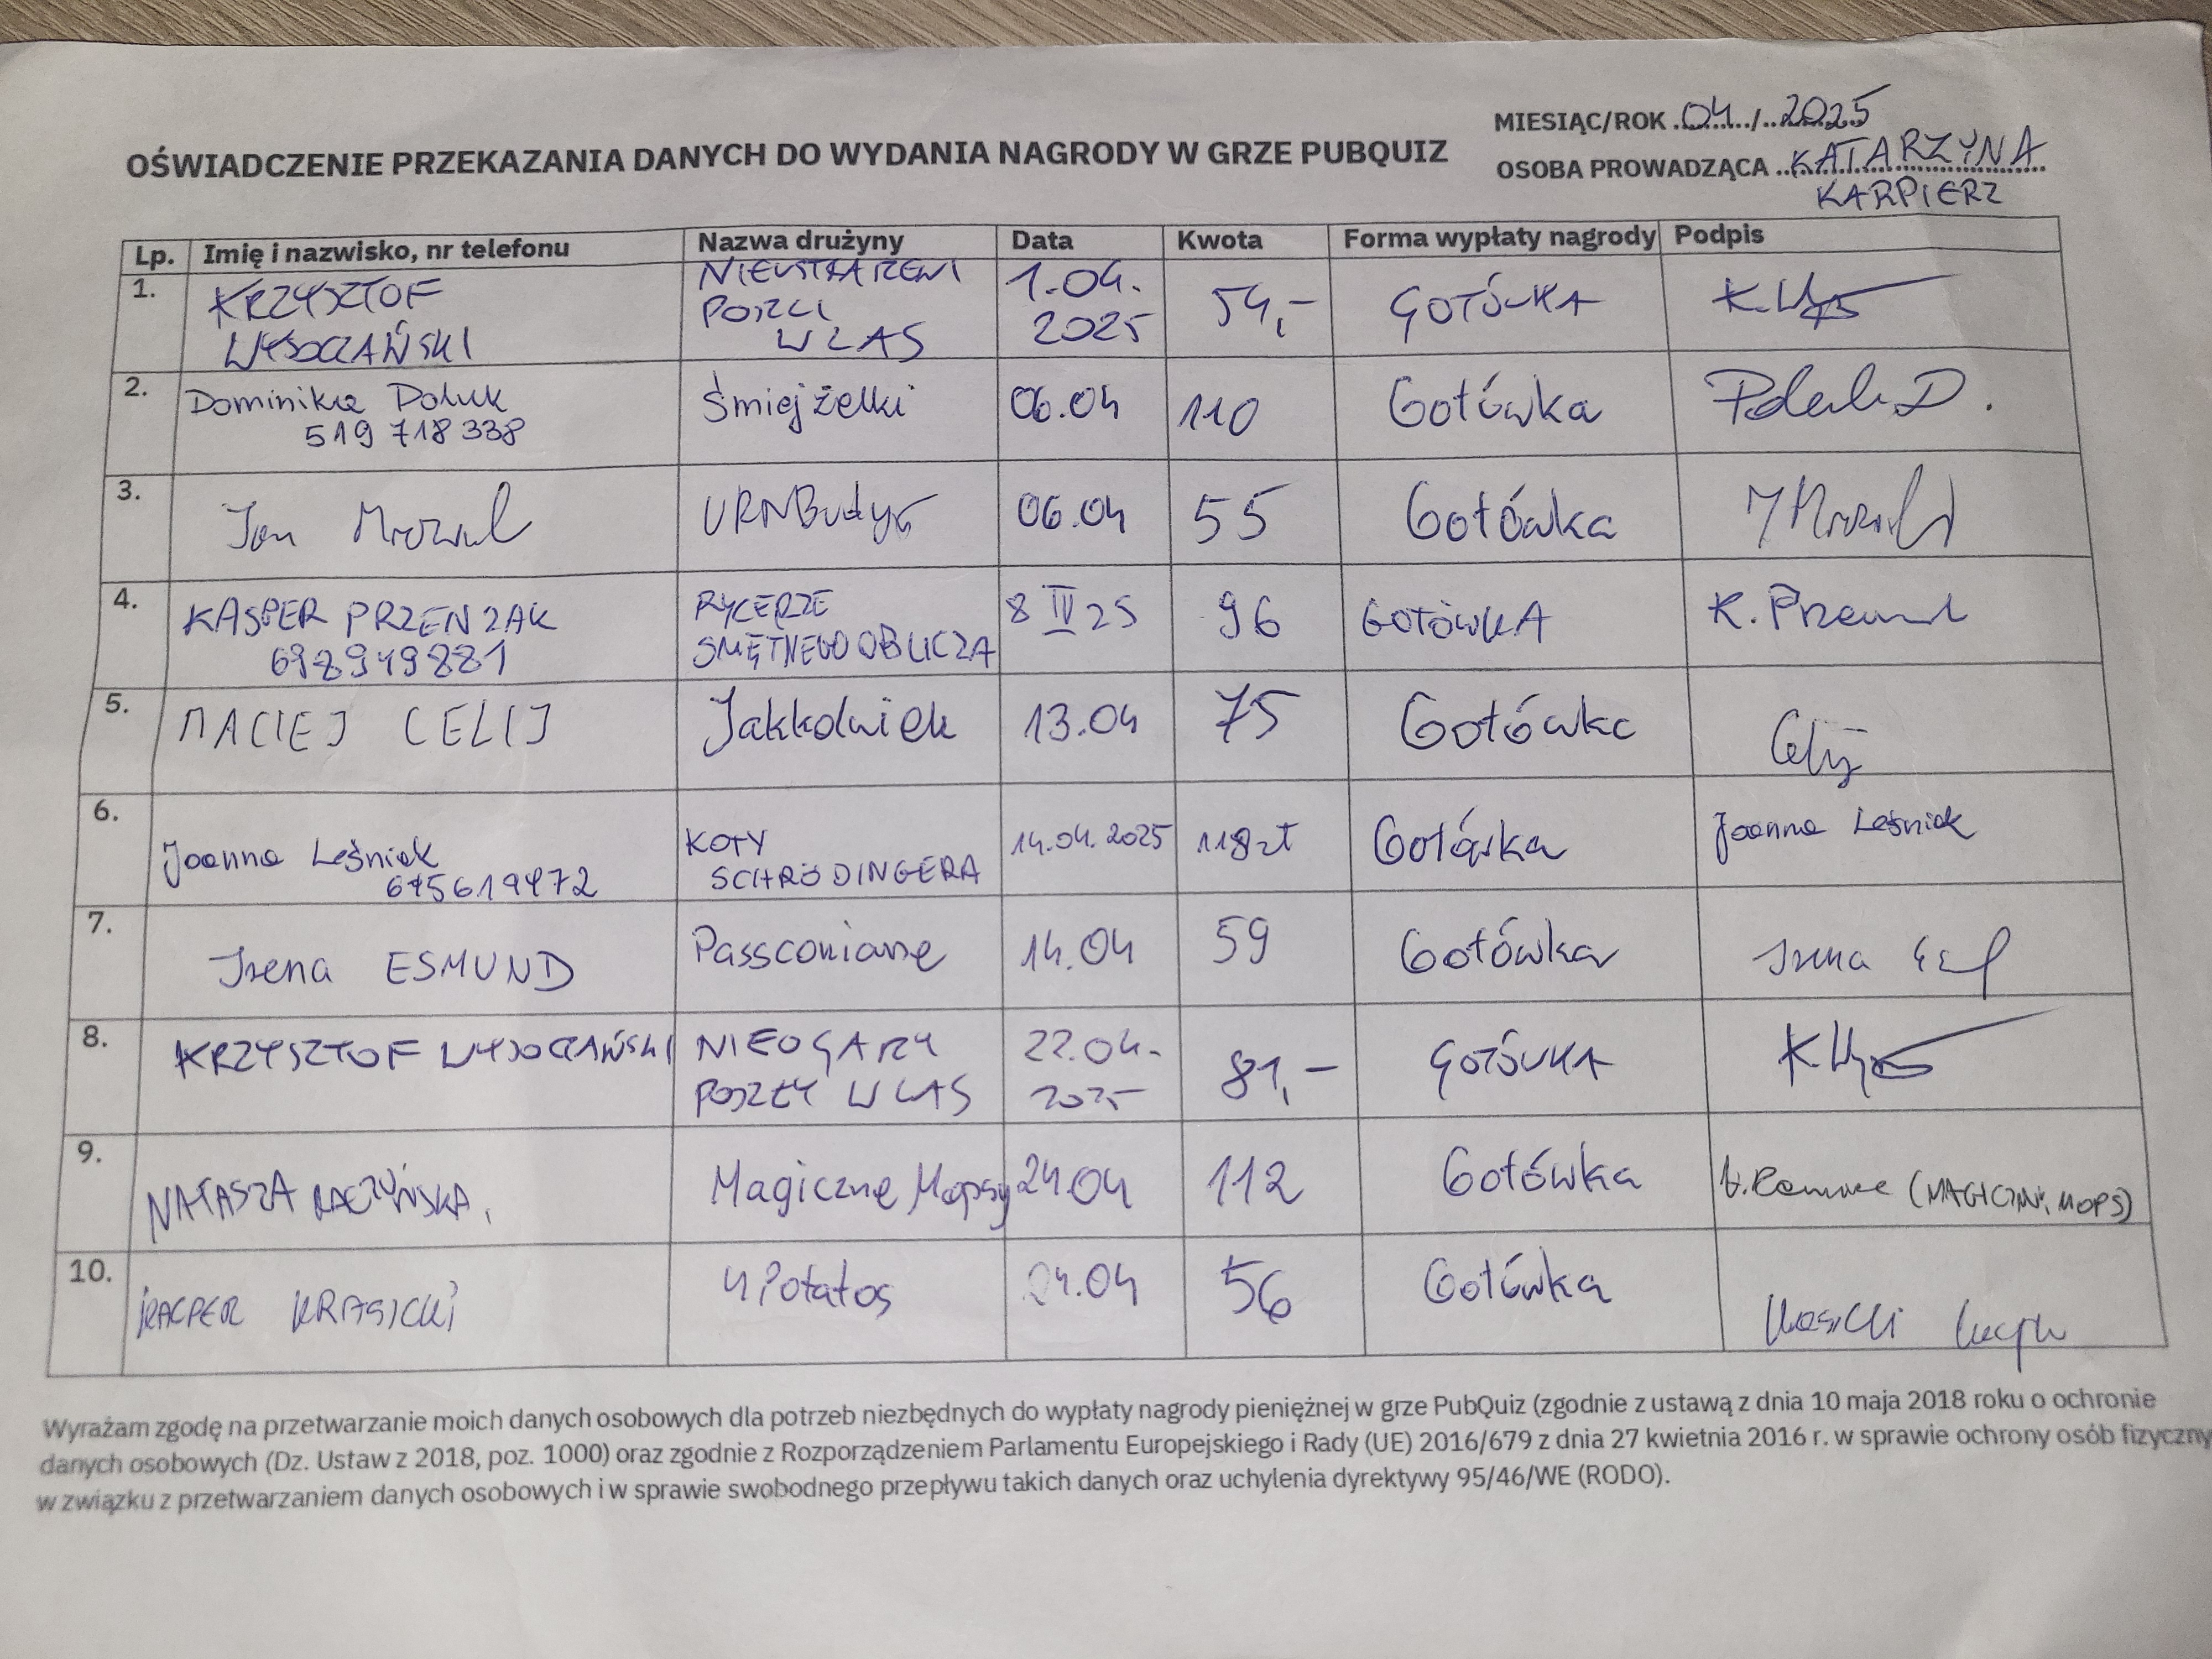 MIESIĄC/ROK 04/2025
OŚWIADCZENIE PRZEKAZANIA DANYCH DO WYDANIA NAGRODY W GRZE PUBQUIZ
OSOBA PROWADZĄCA KATARZYNA
KARPIERZ
Lp. Imię i nazwisko, nr telefonu Nazwa drużyny Data Kwota Forma wypłaty nagrody Podpis
1. KRZYSZTOF NIEUSTRASZENI 1.04. 54,- GOTÓWKA
WYSOCZAŃSKI POSZLI 2025
W LAS
2. Dominika Śmiejżelki 06.04 110 Gotówka
519 718 338
3. Jan URNBudyg 06.04 55 Gotówka
4. KASPER PRZENZAK RYCERZE 8 IV 25 96 GOTÓWKA
698949881 SMĘTNEGO OBLICZA
5. MACIEJ CELIJ Jakkolwiek 13.04 75 Gotówka Celij
6. Joanna Leśniak KOTY 14.04.2025 118 zł Gotówka Joanna Leśniak
SCHRÖDINGERA
7. Irena ESMUND 14.04 59 Gotówka Irena
8. KRZYSZTOF WYSOCZAŃSKI NIEOGARY 22.04. 81,- GOTÓWKA
POSZŁY W LAS 2025
9. NATASZA RACZYŃSKA Magiczne Mopsy 24.04 112 Gotówka
10. KACPER KRASICKI 4 Potatos 24.04 56 Gotówka
Wyrażam zgodę na przetwarzanie moich danych osobowych dla potrzeb niezbędnych do wypłaty nagrody pieniężnej w grze PubQuiz (zgodnie z ustawą z dnia 10 maja 2018 roku o ochronie
danych osobowych (Dz. Ustaw z 2018, poz. 1000) oraz zgodnie z Rozporządzeniem Parlamentu Europejskiego i Rady (UE) 2016/679 z dnia 27 kwietnia 2016 r. w sprawie ochrony osób fizyczny
w związku z przetwarzaniem danych osobowych i w sprawie swobodnego przepływu takich danych oraz uchylenia dyrektywy 95/46/WE (RODO).